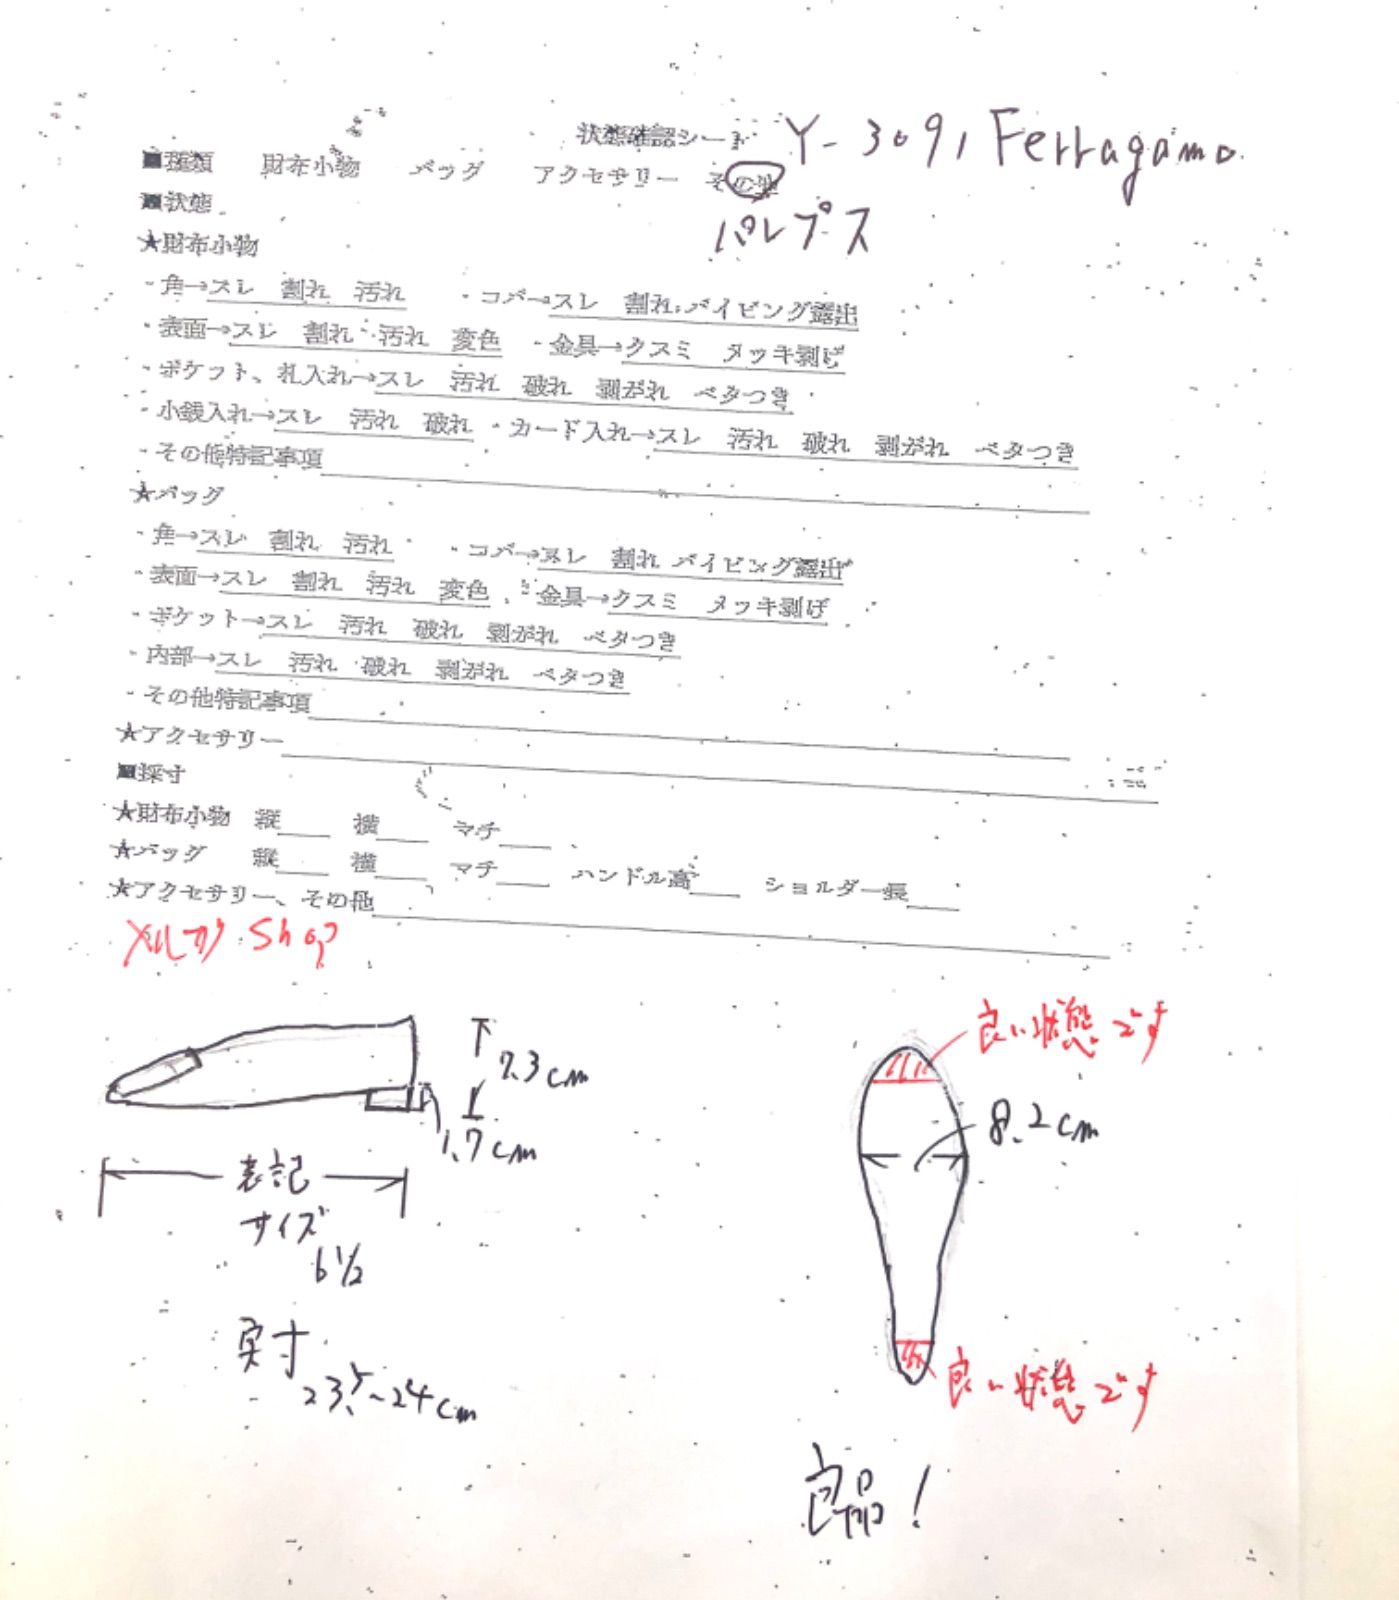 状態確認シート Y-3091 Ferragamo
■種類 財布小物 バッグ アクセサリー その他
■状態 パンプス
★財布小物
・角→スレ 割れ 汚れ ・コバ→スレ 割れ パイピング露出
・表面→スレ 割れ 汚れ 変色 ・金具→クスミ メッキ剥げ
・ポケット、札入れ→スレ 汚れ 破れ 剥がれ ベタつき
・小銭入れ→スレ 汚れ 破れ ・カード入れ→スレ 汚れ 破れ 剥がれ ベタつき
・その他特記事項
★バッグ
・角→スレ 割れ 汚れ ・コバ→スレ 割れ パイピング露出
・表面→スレ 割れ 汚れ 変色 ・金具→クスミ メッキ剥げ
・ポケット→スレ 汚れ 破れ 剥がれ ベタつき
・内部→スレ 汚れ 破れ 剥がれ ベタつき
・その他特記事項
★アクセサリー
■採寸
★財布小物 縦 横 マチ
★バッグ 縦 横 マチ ハンドル高 ショルダー長
★アクセサリー、その他
メルカリ Shop
良い状態です
7.3cm
8.2cm
1.7cm
表記
サイズ
6½
実寸
23.5~24cm
良い状態です
良品!